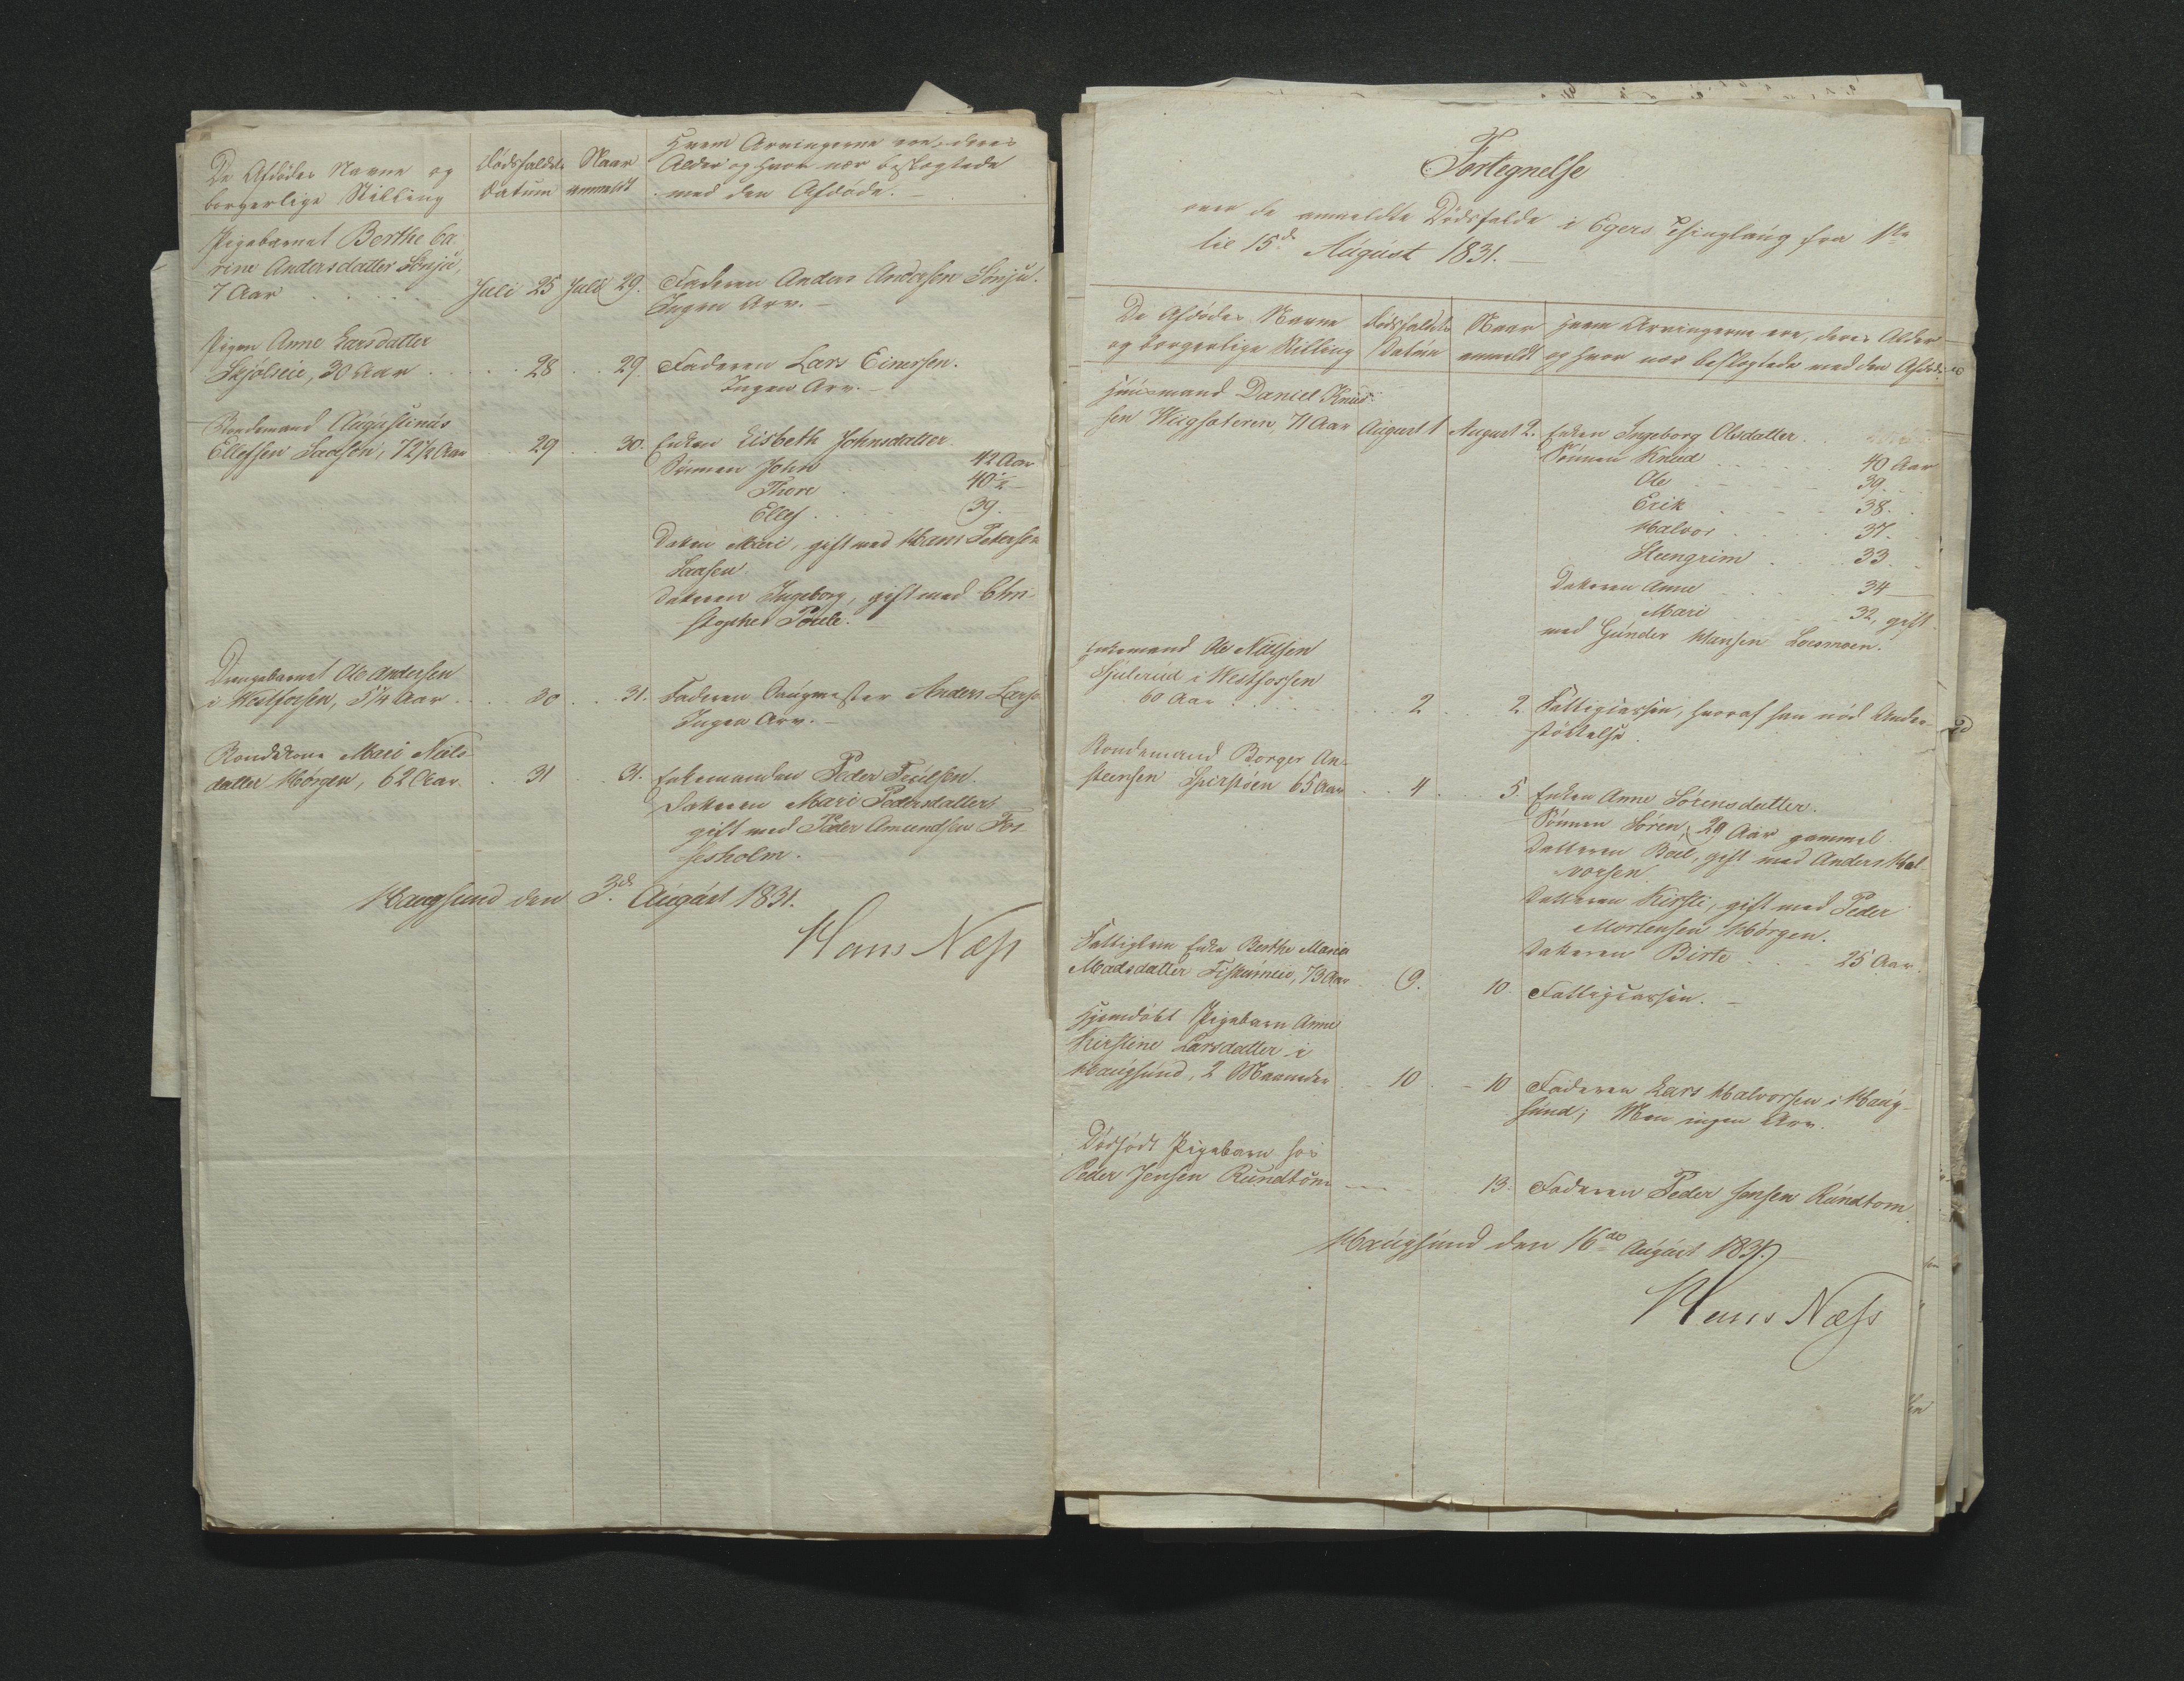 De Afdödes Navne og
borgerlige Stilling
Dødsfaldets
Datum
Naar
anmeldt
Hvem Arvingerne ere, deres
Alder og hvor nær beslægtede
med den Afdøde.
Pigebarnet Berthe Ca-
rine Andersdatter Sønju,
7 Aar . . . . Juli 25 Juli 29. Faderen Anders Andersen Sønju.
Ingen Arv. –
Pigen Anne Larsdatter
Skjølseie, 30 Aar . . . 28 . . 29 Faderen Lars Einersen.
Ingen Arv. –
Bondemand Augustinus
Ellefsen Saasen, 72½ Aar . . 29 . . 30. Enken Lisbeth Johnsdatter.
Sönnen John 42 Aar
Thore . . 40½ –
Ellef . . . 39. –
Datten Mari, gift med Hans Petersen
Saasen.
Datteren Ingeborg, gift med Chri-
stopher
Drengebarnet Ole Andersen
i Westfossen, 5¼ Aar . . . 30 . . 31. Faderen Anders Larse
Ingen Arv. –
Bondekone Mari Niels-
datter Hörgen, 62 Aar . 31 . . 31. Enkemanden Peder
Datteren Mari Pedersdatter
gift med Peder Amundsen Fos-
sesholm.
Haugsund den 3d August 1831.
Hans Næss
Fortegnelse
over de anmeldte Dödsfalde i Egers Thinglaug fra 1ste
til 15d August 1831. –
De Afdödes Navne
og borgerlige Stilling
Dødsfaldets
Datum
Naar
anmeldt
Hvem Arvingerne ere, deres Alder
og hvor nær beslægtede med den Afdøde
Huusmand Daniel Knud-
sen Wiigsæteren, 71 Aar August 1 August 2. Enken Ingeborg Olsdatter.
Sönnen Knud . . . . 40 Aar
Ole . . . 39. –
Erik . . . 38. –
Halvor . . . 37. –
Steengrim . . 33. –
Datteren Anne . . . 34 –
Mari . . . 32, gift
med Gunder Hansen Loesmoen.
Enkemand Ole Nilssen
Sjulerud i Westfossen
60 Aar . . . . 2 . . 2. Fattigcassen, hvoraf han nød Under-
støttelse.
Bondemand Borger An-
steensen 65 Aar . . 4 . . 5. Enken Anne Sörensdatter.
Sönnen Sören, 29 Aar gammel.
Datteren Boel, gift med Anders Hal-
vorsen.
Datteren Kirsti, gift med Peder
Mortensen Hörgen.
Datteren Birte . . . 25 Aar.
Fattiglem Enke Berthe Maria
Madsdatter 73 Aar . . 9. 10. Fattigcassen. –
Hjemdøbt Pigebarn Anne
Kirstine Larsdatter i
Haugsund, 2 Maaneder . . 10 . – 10 Faderen Lars Halvorsen i Haug-
sund; Men ingen Arv.
Dødfødt Pigebarn hos
Peder Jensen Rundtom — . . 13. Faderen Peder Jensen Rundtom.
Haugsund den 16de August 1831.
Hans Næss